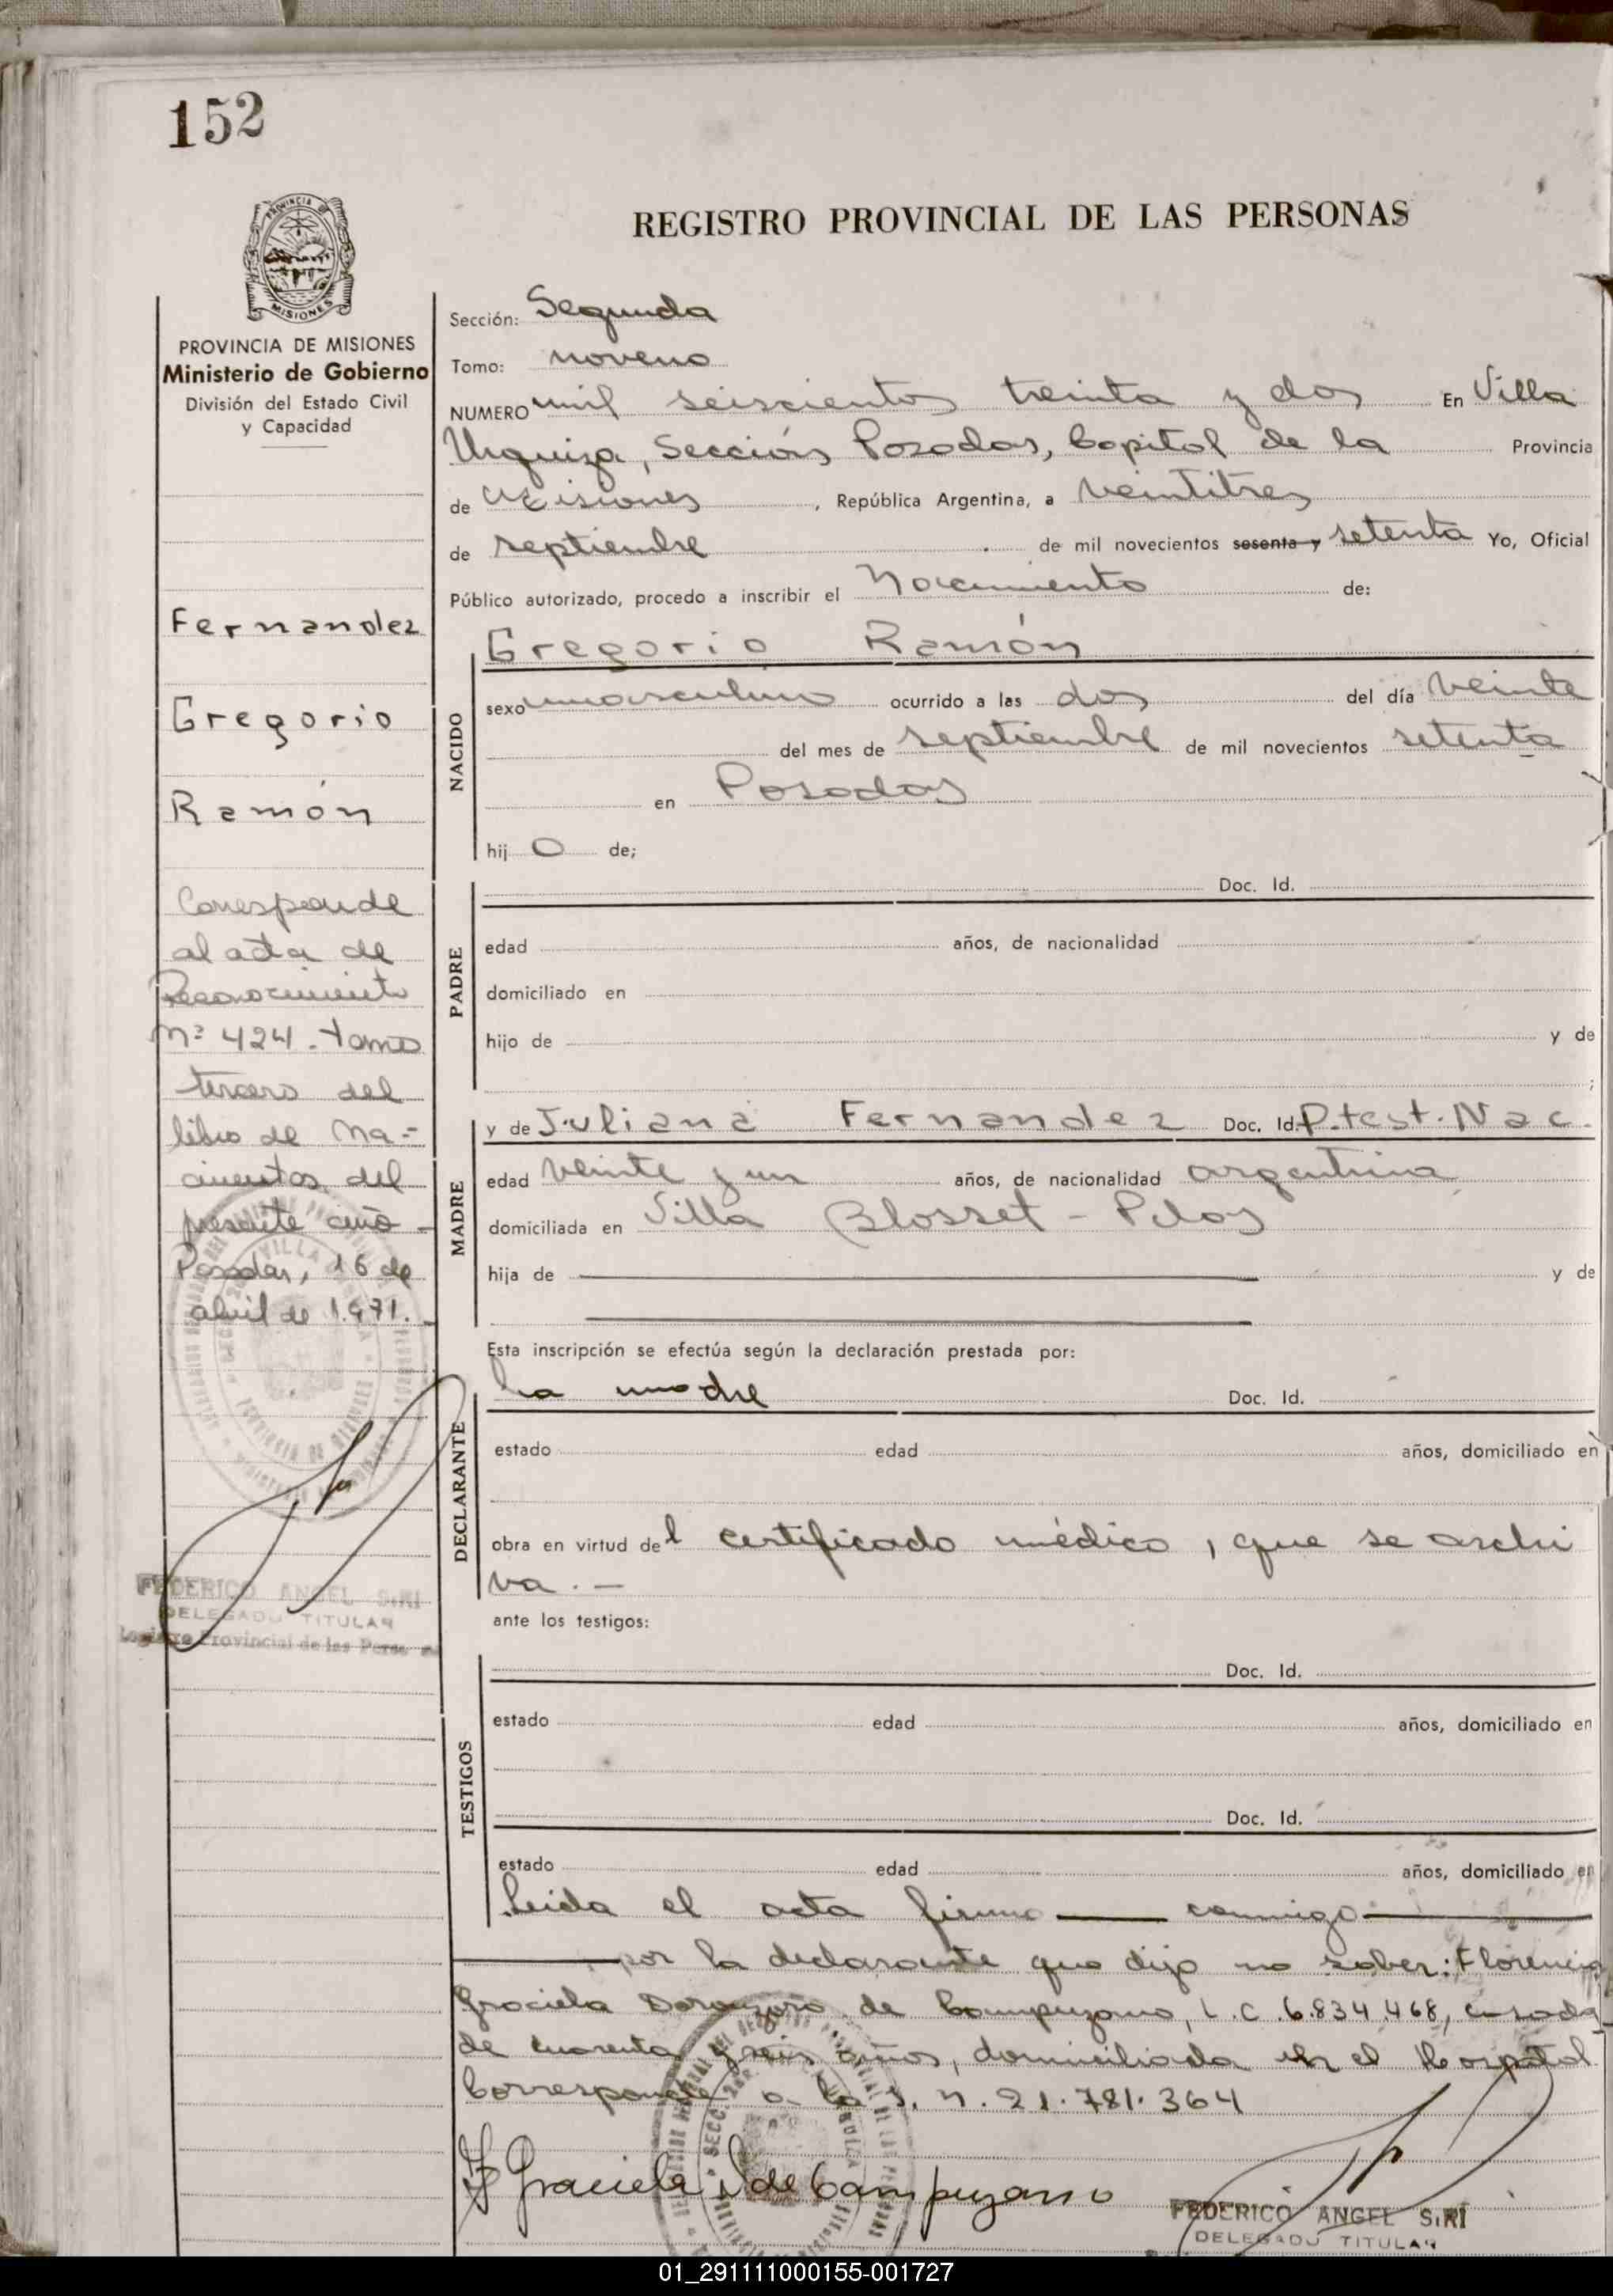 152
REGISTRO PROVINCIAL DE LAS PERSONAS
PROVINCIA DE MISIONES
Ministerio de Gobierno
División del Estado Civil
y Capacidad
Fernandez
Gregorio
Ramón
Corresponde
al acta de
Reconocimiento
Nº 424 - tomo
tercero del
libro de Na-
cimientos del
presente año -
Posadas, 16 de
abril de 1.971.
FEDERICO ANGEL SIRI
DELEGADO TITULAR
Registro Provincial de las
Sección: Segunda
Tomo: noveno
NUMERO mil seiscientos treinta y dos En Villa
Urquiza, Sección Posadas, Capital de la Provincia
de Misiones, República Argentina, a veintitres
de septiembre de mil novecientos sesenta y setenta Yo, Oficial
Público autorizado, procedo a inscribir el Nacimiento de:
NACIDO
Gregorio Ramón
sexo masculino ocurrido a las dos del día veinte
del mes de septiembre de mil novecientos setenta
en Posadas
hij o de;
PADRE
Doc. Id.
edad años, de nacionalidad
domiciliado en
hijo de y de
;
MADRE
y de Juliana Fernandez Doc. Id. P. test. Nac.
edad veinte y un años, de nacionalidad argentina
domiciliada en Villa Blosset - Pdas
hija de y de
Esta inscripción se efectúa según la declaración prestada por:
DECLARANTE
La madre Doc. Id.
estado edad años, domiciliado en
obra en virtud del certificado médico, que se archi
va. -
ante los testigos:
TESTIGOS
Doc. Id.
estado edad años, domiciliado en
Doc. Id.
estado edad años, domiciliado en
Leida el acta firma conmigo
por la declarante que dijo no saber: Florencia
Graciela de Campuzano, L.C. 6.834.468, casada
de cuarenta y seis años, domiciliada en el Hospital
Corresponde a la D. N. 21.781.364
F Graciela D de Campuzano
FEDERICO ANGEL SIRI
DELEGADO TITULAR
01_291111000155-001727